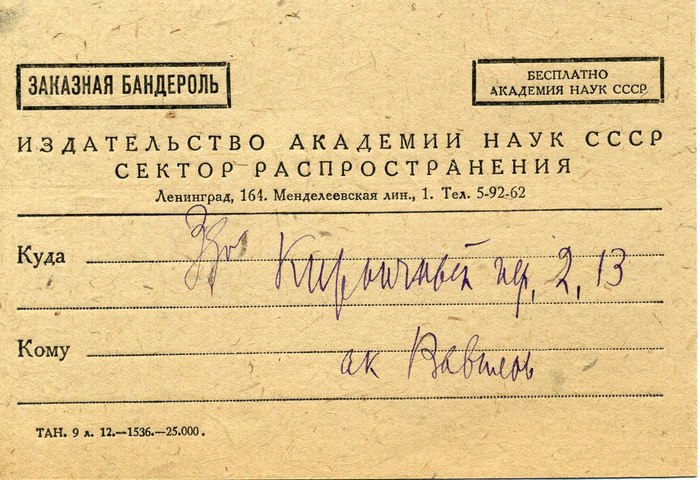 ЗАКАЗНАЯ БАНДЕРОЛЬ
БЕСПЛАТНО
АКАДЕМИЯ НАУК СССР
ИЗДАТЕЛЬСТВО АКАДЕМИИ НАУК СССР
СЕКТОР РАСПРОСТРАНЕНИЯ
Ленинград, 164. Менделеевская лин., 1. Тел. 5-92-62
Куда Кирпичный пер, 2, 13
Кому ак Вавилов
ТАН. 9 л. 12.—1536.—25.000.